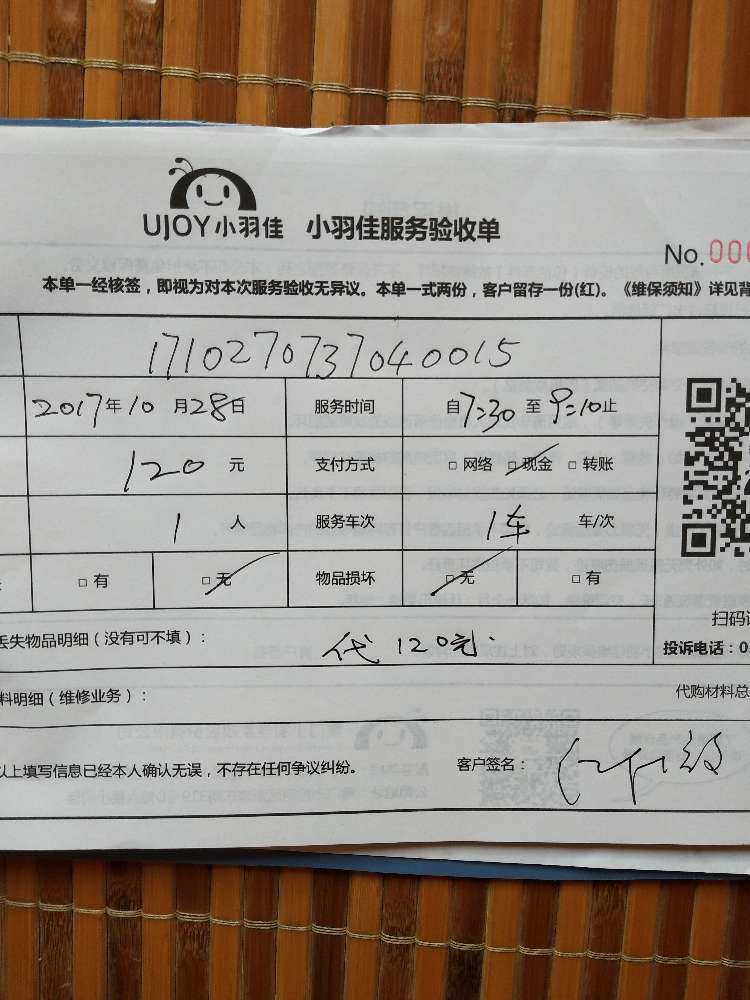 UJOY小羽佳 小羽佳服务验收单
No. 000
本单一经核签，即视为对本次服务验收无异议。本单一式两份，客户留存一份(红)。《维保须知》详见背
1710270737040015
2017年10月28日 服务时间 自7:30至9:10止
120元 支付方式 □ 网络 □ 现金 □ 转账
1人 服务车次 1车 车/次
□ 有 □ 无 物品损坏 □ 无 □ 有
扫码
丢失物品明细（没有可不填）： 代120元. 投诉电话：0
料明细（维修业务）： 代购材料总
以上填写信息已经本人确认无误，不存在任何争议纠纷。 客户签名：